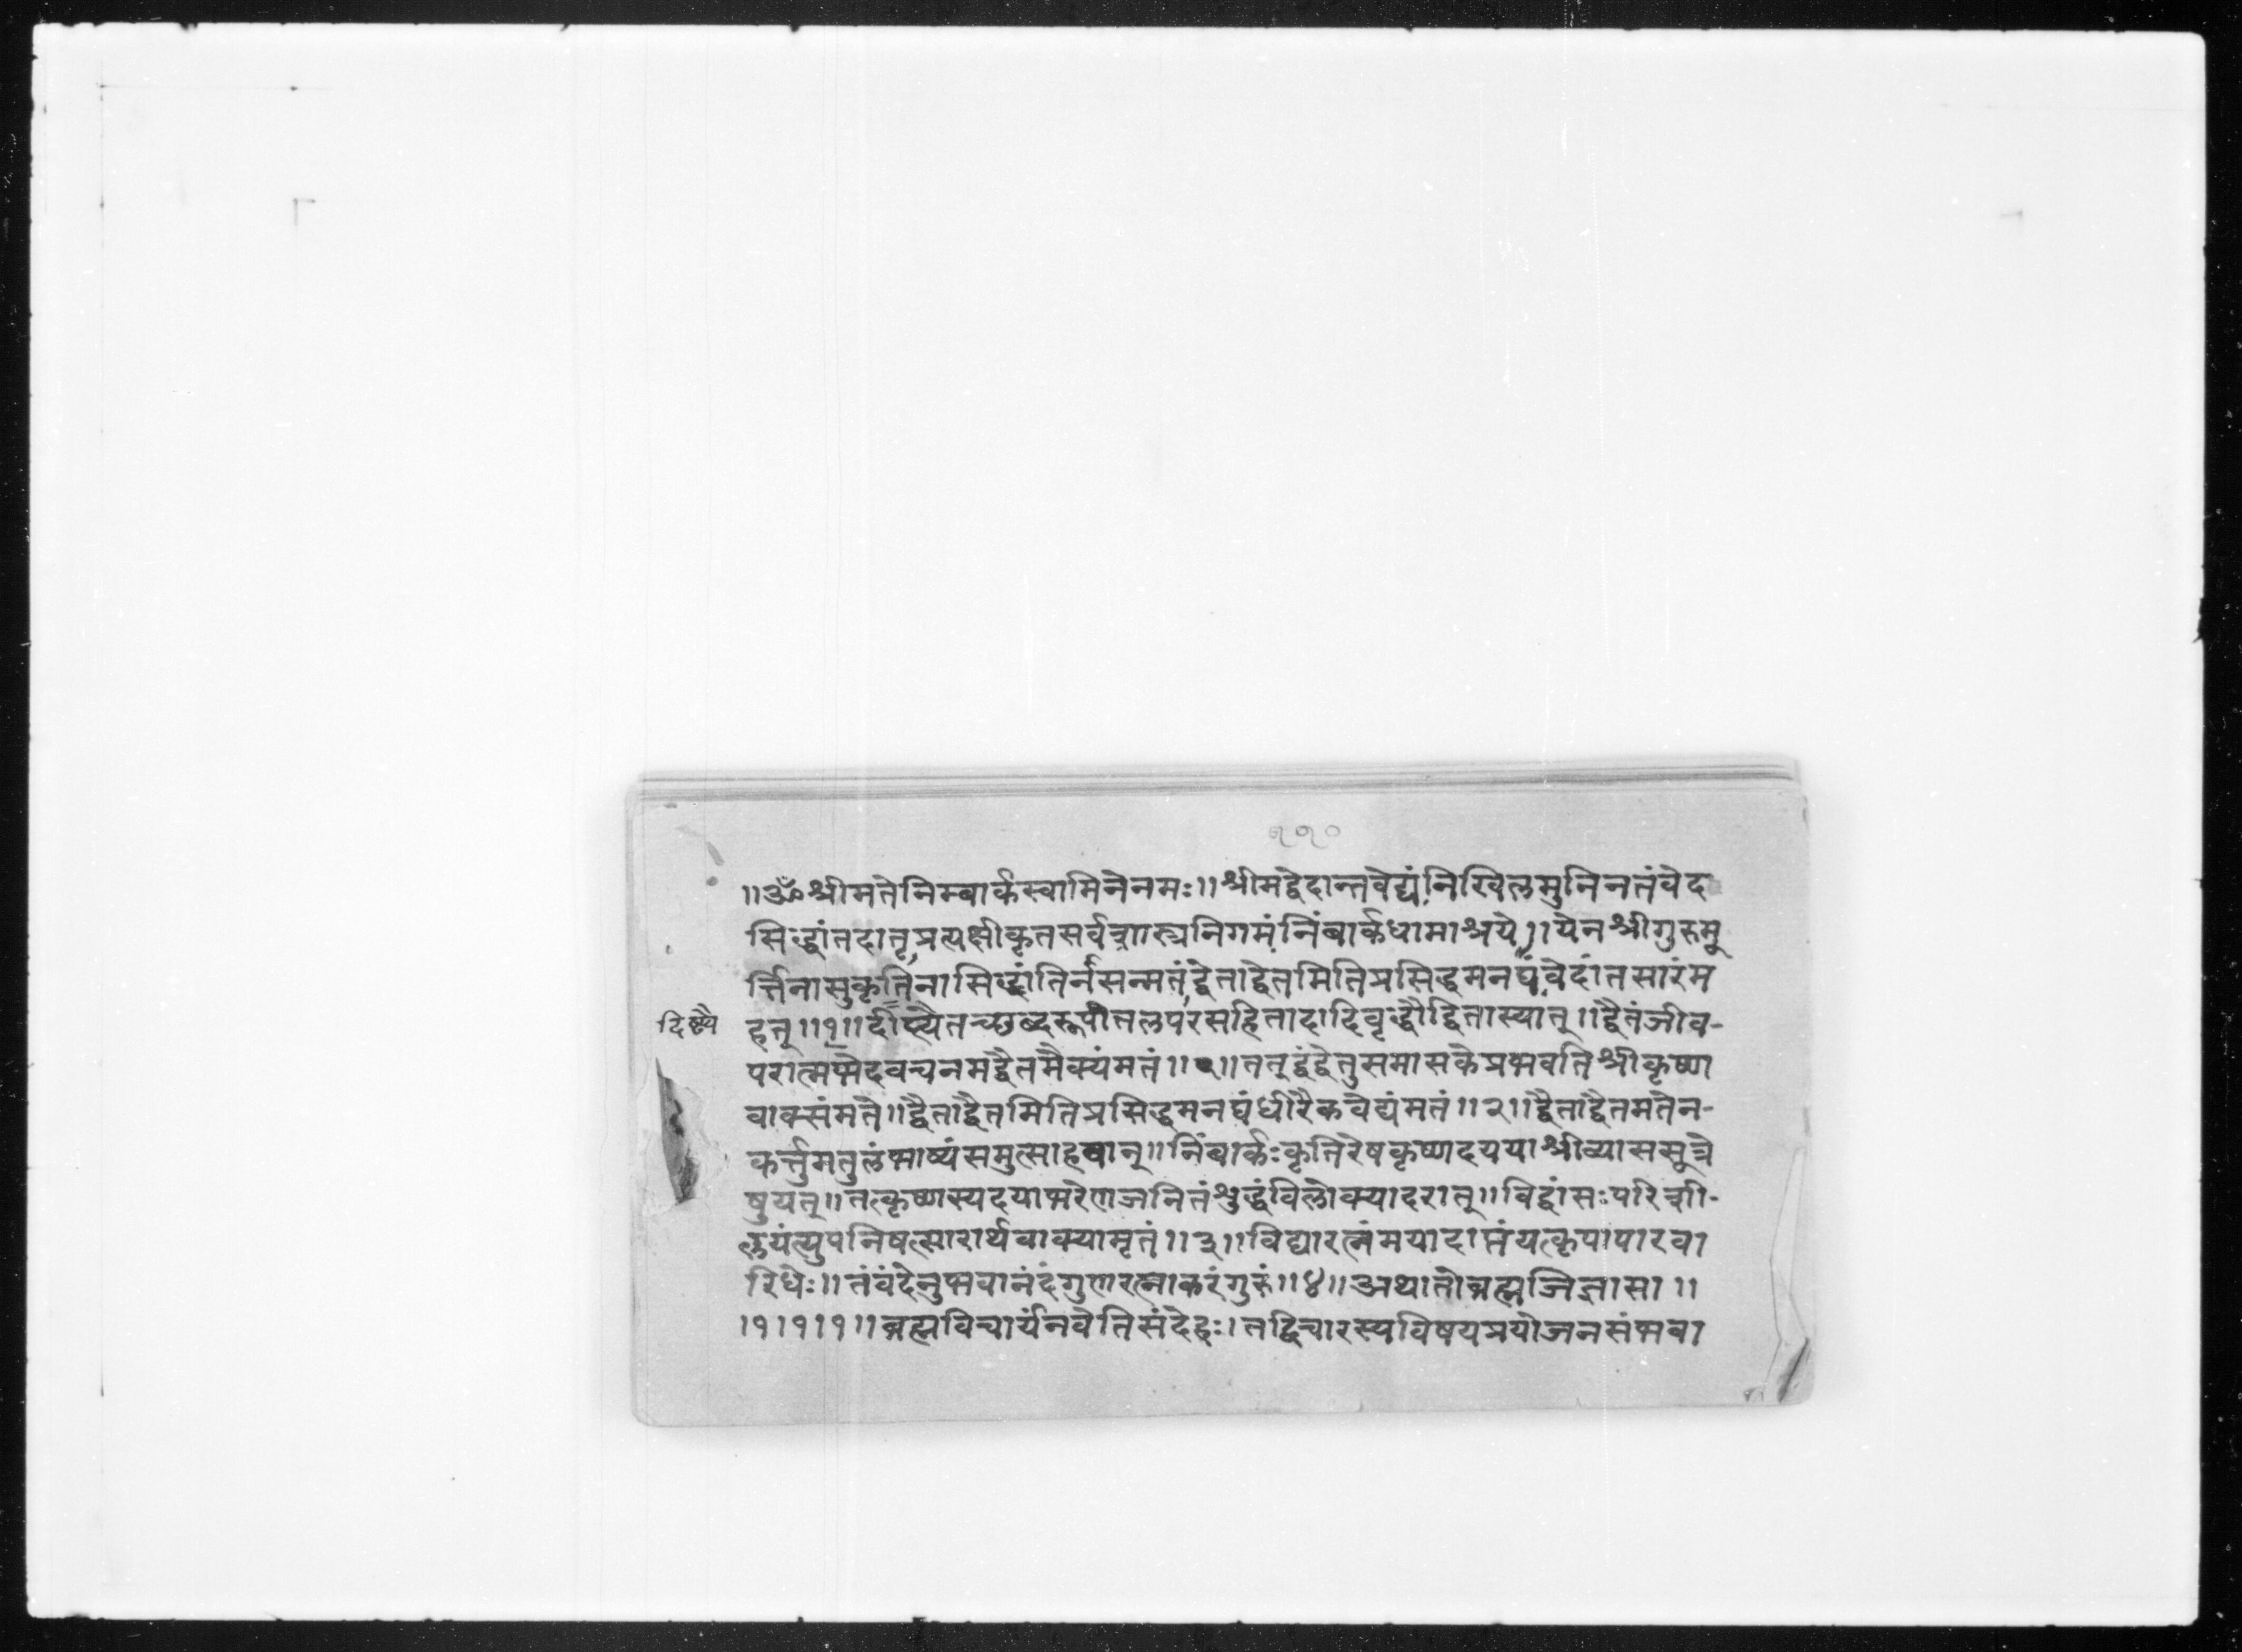 ११०
॥ॐश्रीमतेनिम्बार्कस्वामिनेनमः॥श्रीमद्वेदान्तवेद्यंनिखिलमुनिनतंवेद
सिद्धांतदातृप्रत्यक्षीकृतसर्वशास्त्रनिगमंनिंबार्कधामाश्रये॥येनश्रीगुरुमू
र्त्तिनासुकृतिनासिद्धांतिनसन्मतंद्वैताद्वैतमितिप्रसिद्धमनघंवेदांतसारंम
दिष्ट्यै
हत्॥१॥र्दीष्ट्यैतच्छब्दरूपीतलपरसहितादादिवृद्धौद्वितास्यात्॥द्वैतंजीव-
परात्मभेदवचनमद्वैतमैक्यंमतं॥१॥तत्द्वंद्वेतुसमासकेप्रभवतिश्रीकृष्ण
वाक्संमते॥द्वैताद्वैतमितिप्रसिद्धमनघंधीरैकवेद्यंमतं॥२॥द्वैताद्वैतमतेन-
कर्त्तुमतुलंभाष्यंसमुत्साहवान्॥निंबार्कःकृतिरेषकृष्णदययाश्रीव्याससूत्रे
षुयत्॥तत्कृष्णस्यदयाभरेणजनितंशुद्धंविलोक्यादरात्॥विद्वांसःपरिशी-
लयंत्युपनिषत्सारार्थवाक्यामृतं॥३॥विद्यारत्नंमयादाप्तंयत्कृपापारवा
रिधेः॥तंवंदेनुभवानंदंगुणरत्नाकरंगुरुं॥४॥अथातोब्रह्मजिज्ञासा॥
।१।१।१॥ब्रह्मविचार्यंनवेतिसंदेहः।तद्विचारस्यविषयप्रयोजनसंभवा